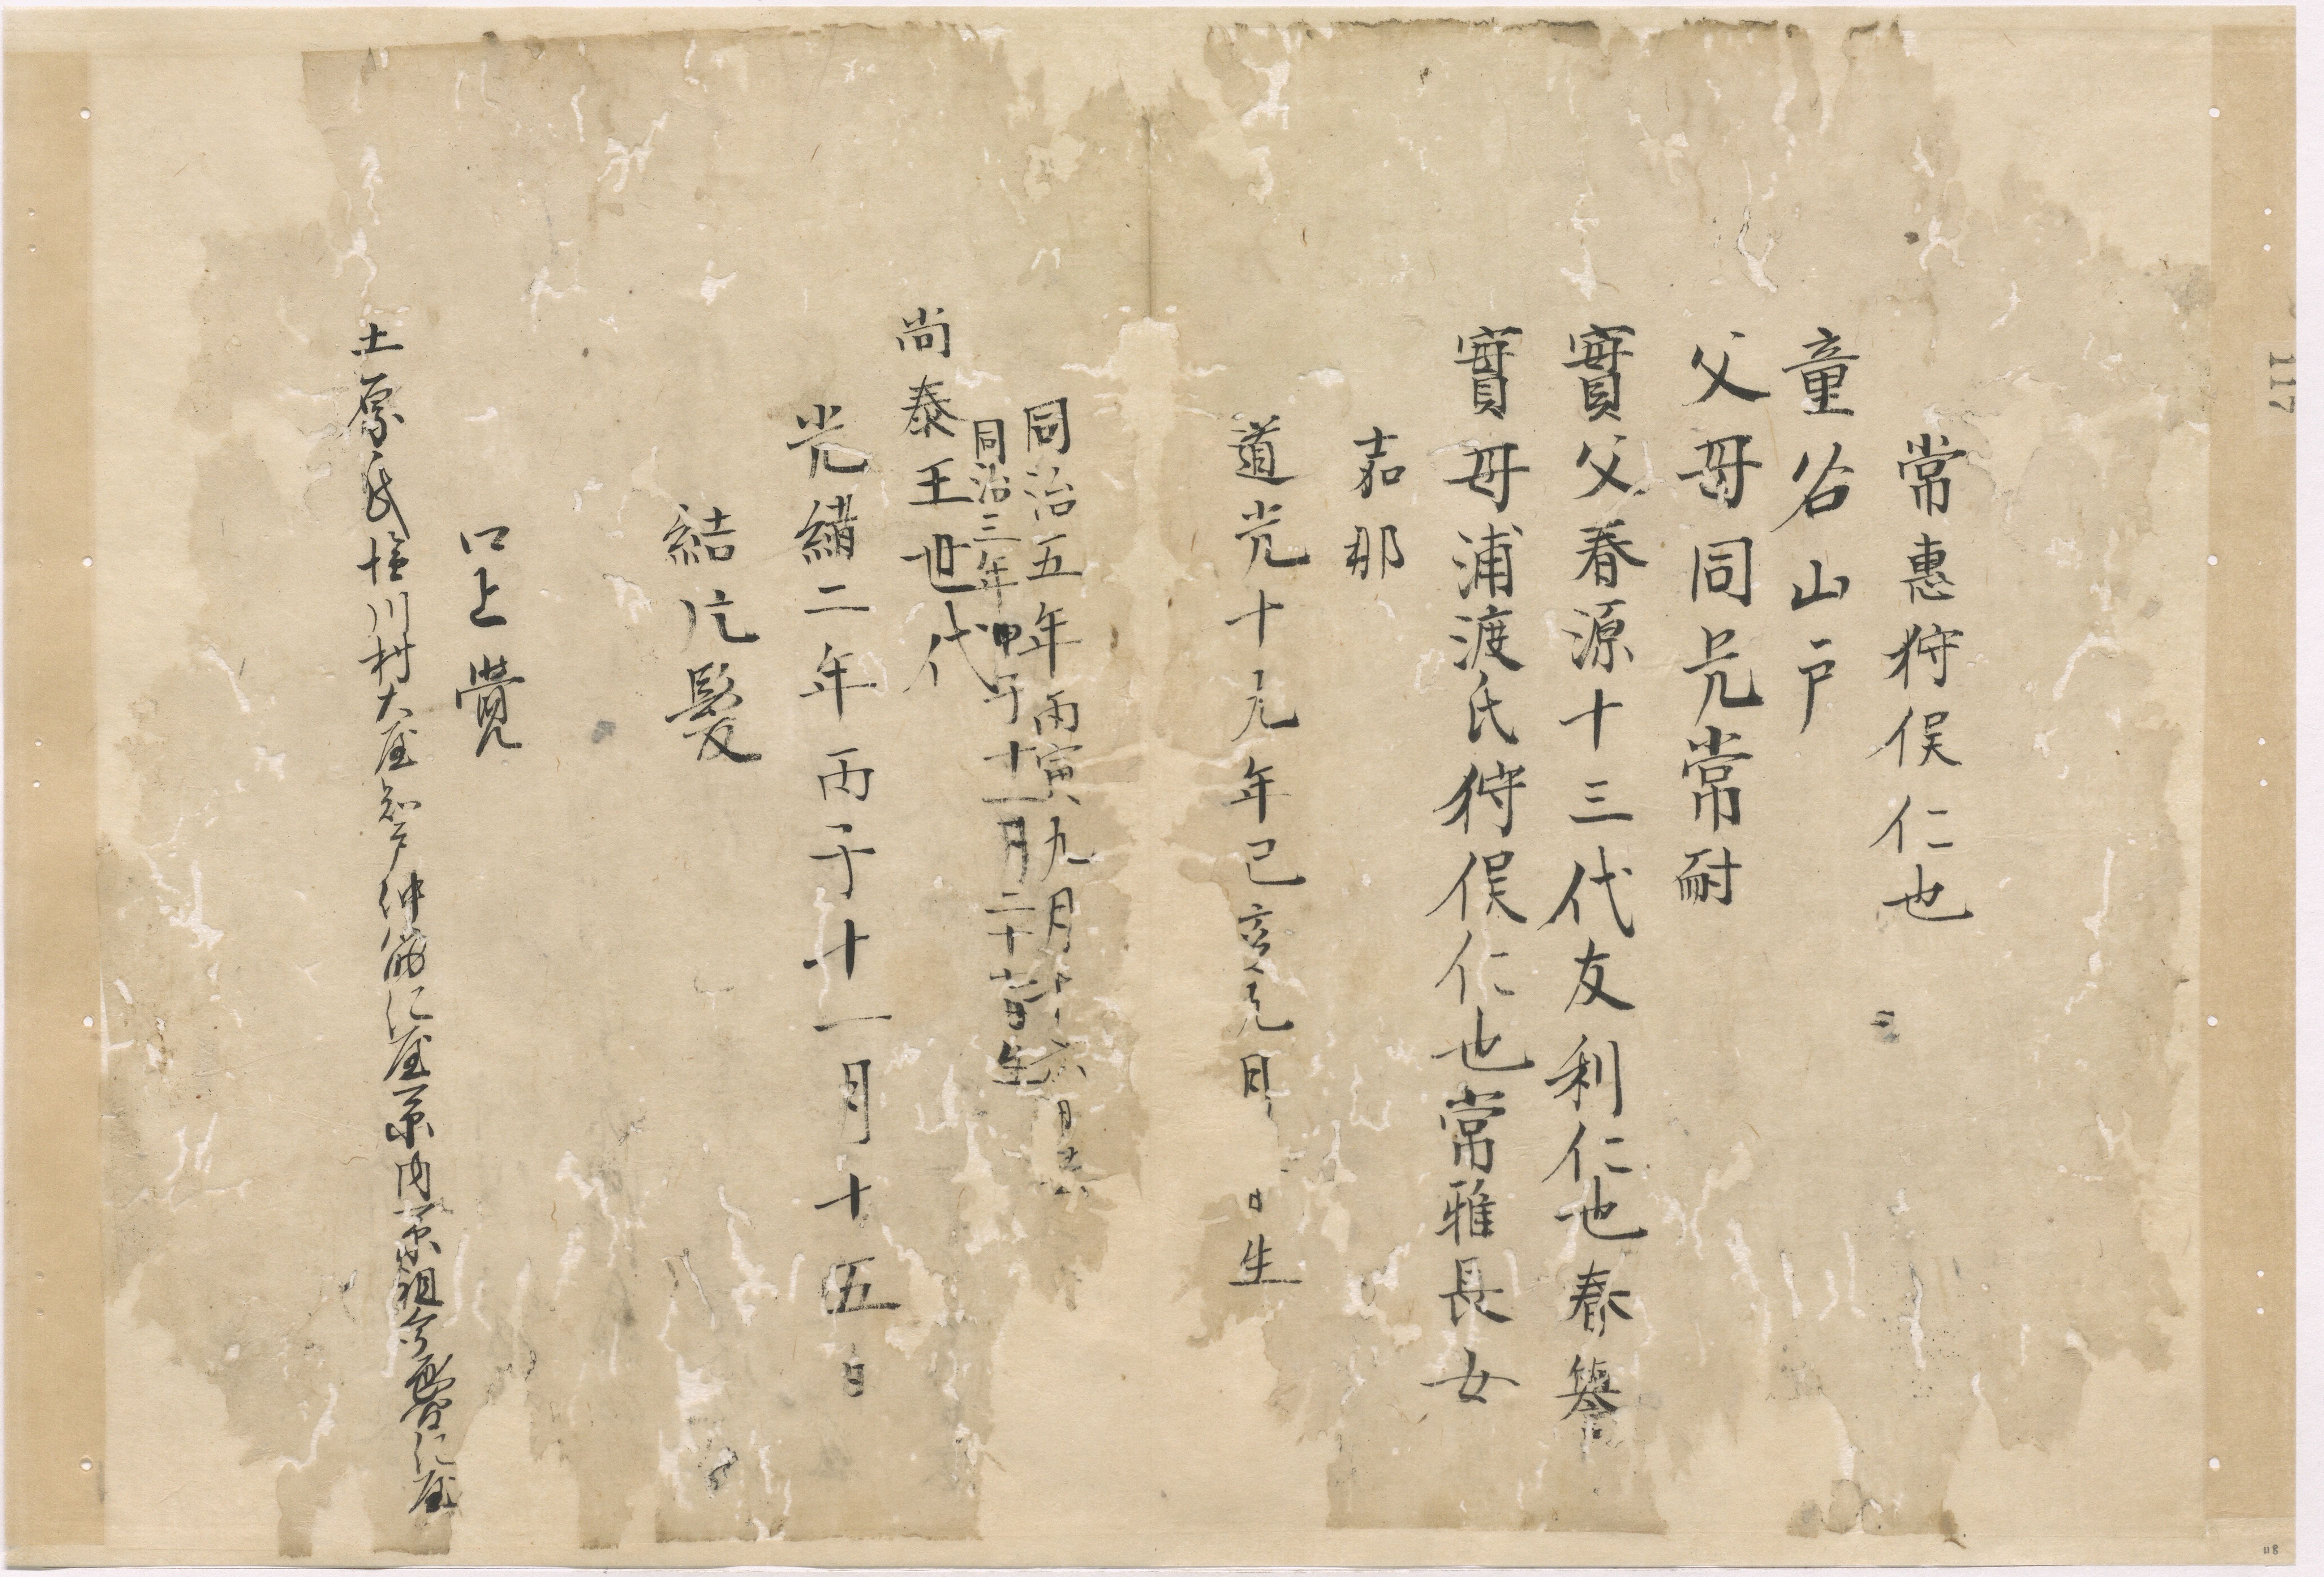 常惠狩俣仁也
童名山戸
父母同兄常耐
實父春源十三代友利仁也春
實母浦渡氏狩俣仁也常雅長女
嘉那
道光十九年己亥九月 日生
同治五年丙寅九月十六
同治三年甲子十一月二十 日生
尚泰王世代
光緒二年丙子十一月十五日
結片髮
口上覺
土原氏 川村大屋 仲 に屋 内 祖 に屋
117
118